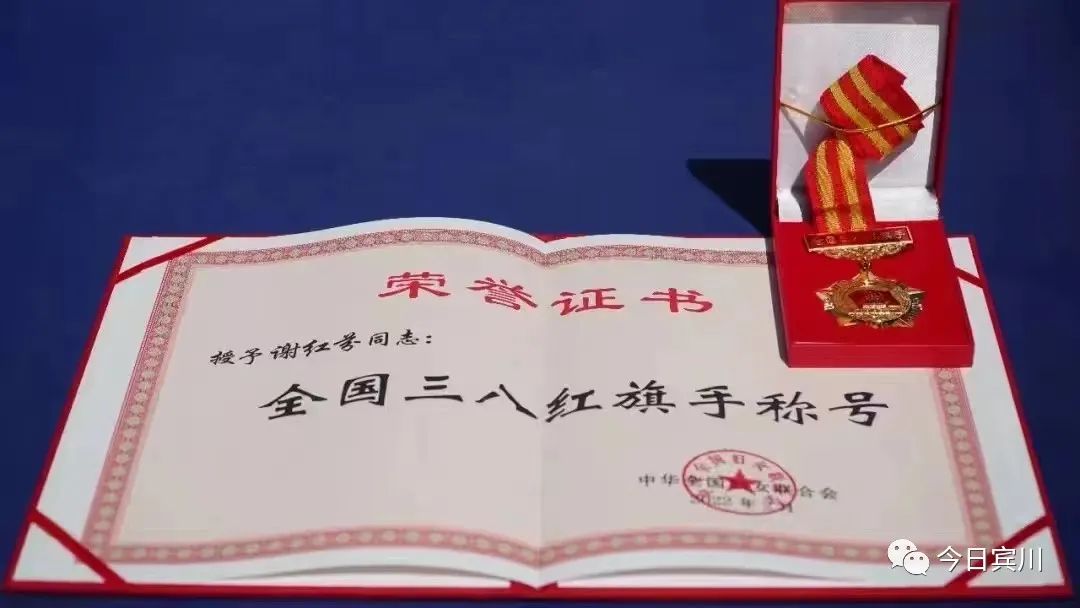 荣誉证书
授予谢红芬同志：
全国三八红旗手称号
中华全国妇女联合会
2022年3月
今日宾川